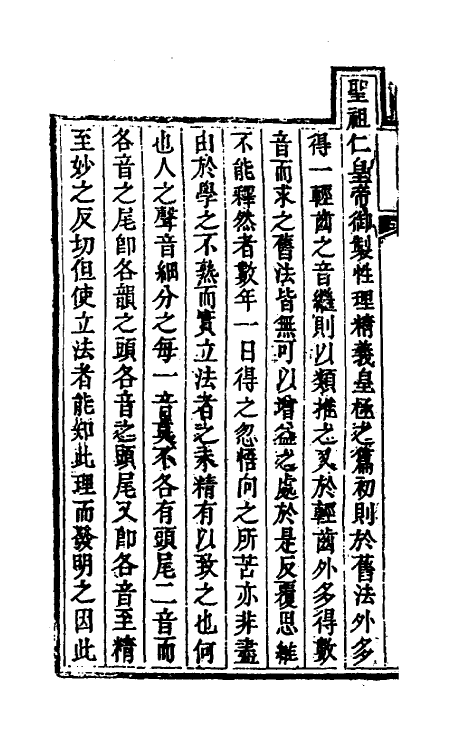 聖祖仁皇帝御製性理精義皇極之篇初則於舊法外多
得一輕齒之音繼則以類推之又於輕齒外多得數
音而求之舊法皆無可以增益之處於是反覆思維
不能釋然者數年一日得之忽悟向之所苦亦非盡
由於學之不熟而實立法者之未精有以致之也何
也人之聲音細分之每一音莫不各有頭尾二音而
各音之尾卽各韻之頭各音之頭尾又卽各音至精
至妙之反切但使立法者能知此理而發明之因此